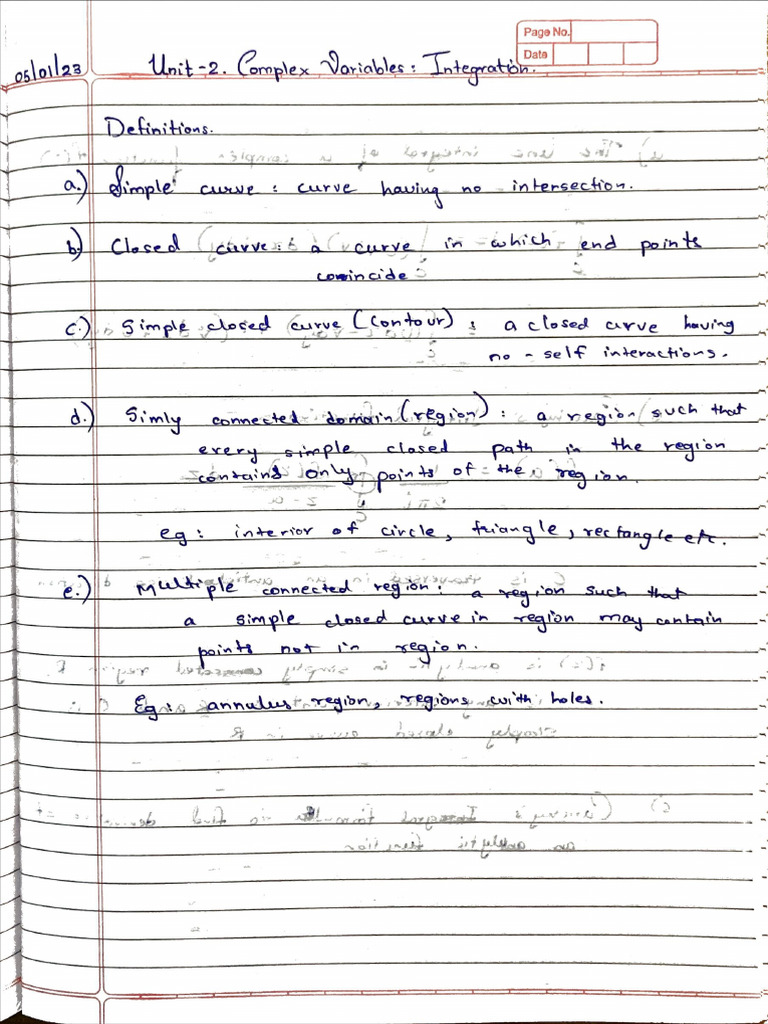 Page No.
Date
05/01/23
Unit-2. Complex Variables: Integration.
Definitions.
a.) Simple curve : curve having no intersection.
b.) Closed curve : a curve in which end points
conincide
c.) Simple closed curve (contour) : a closed curve having
no - self interactions.
d.) Simly connected domain (region) : a region such that
every simple closed path in the region
contains only points of the region.
eg : interior of circle, triangle, rectangle etc.
e.) Multiple connected region : a region such that
a simple closed curve in region may contain
points not in region.
Eg : annulus region, regions with holes.